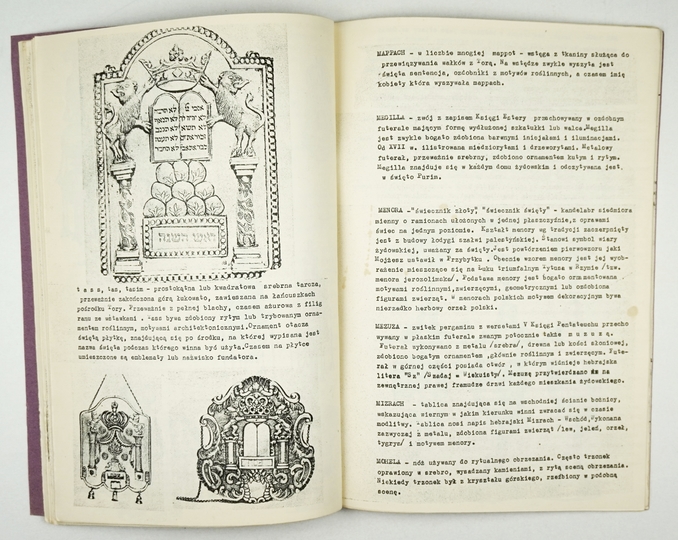 t a s s, tas, tasim - prostokątna lub kwadratowa srebrna tarcza,
przeważnie zakończona górą łukowato, zawieszana na łańcuszkach
pośrodku Tory. Przeważnie z pełnej blachy, czasem ażurowa z filig
ranu ze wstawkami. Tass bywa zdobiony rytym lub trybowanym orna-
mentem roślinnym, motywami architektonicznymi.Ornament otacza
świętą płytkę, znajdującą się po środku, na której wypisana jest
nazwa święta podczas którego winna być użyta.Czasem na płytce
umieszczone są emblematy lub nazwisko fundatora.
MAPPACH - w liczbie mnogiej mappot - wstęga z tkaniny służąca do
przewiązywania wałków z Torą. Na wstędze zwykle wyszyta jest
święta sentencja, ozdobniki z motywów roślinnych, a czasem imię
kobiety która wyszywała mappach.
MEGILLA - zwój z zapisem Księgi Estery przechowywany w ozdobnym
futerale mającym formę wydłużonej szkatułki lub walca.Megilla
jest zwykle bogato zdobiona barwnymi inicjałami i iluminacjami.
Od XVII w. ilustrowana miedziorytami i drzeworytami. Metalowy
futerał, przeważnie srebrny, zdobiono ornamentem kutym i rytym.
Megilla znajduje się w każdym domu żydowskim i odczytywana jest,
w święto Purim.
MENORA -"świecznik złoty", "świecznik święty" - kandelabr siedziora
mienny o ramionach ułożonych w jednej płaszczyźnie,z oprawami
świec na jednym poziomie. Kształt menory wg tradycji zaczerpnięty
jest z budowy łodygi szałwi palestyńskiej. Stanowi symbol wiary
żydowskiej, uważany za święty.Jest powtórzeniem pierwowzoru jaki
Mojżesz ustawił w Przybytku . Obecnie wzorem menory jest jej wyob-
rażenie mieszczące się na łuku triumfalnym Tytosa w Rzymie /tzw.
menora jerozolimska/. Podstawa menory jest bogato ornamentowana
motywami roślinnymi,zwierzęcymi, geometrycznymi lub ozdobiona
figurami zwierząt. W menorach polskich motywem dekoracyjnym bywa
nierzadko herbowy orzeł polski.
MEZUZA - zwitek pergaminu z wersetami V Księgi Pentateuchu przecho
wywany w płaskim futerale zwanym potocznie także m e z u z ą.
Futerał wykonywano z metalu /srebra/, drewna lub kości słoniowej,
zdobiono bogatym ornementem ,głównie roślinnym i zwierzęcym. Fute-
rał w górnej części posiada otwór , w którym widnieje hebrajska
litera "Sz" /Szadaj = Wiekuisty/. Mezuzę przytwierdzano na
zewnętrznej prawej framudze drzwi każdego mieszkania żydowskiego.
MIZRACH - tablica znajdująca się na wschodniej ścianie bożnicy,
wskazująca wiernym w jakim kierunku winni zwracać się w czasie
modlitwy. Tablica nosi napis hebrajski Mizrach - Wschód.Wykonana
zazwyczaj z metalu, zdobiona figurami zwierząt /lew, jeleń, orzeł,
tygrys/ i motywem menory.
MOHELA - nóż używany do rytualnego obrzezania. Często trzonek
oprawiony w srebro, wysadzany kamieniami, z rytą sceną obrzezania.
Niekiedy trzonek był z kryształu górskiego, rzeźbiony w podobną
scenę.